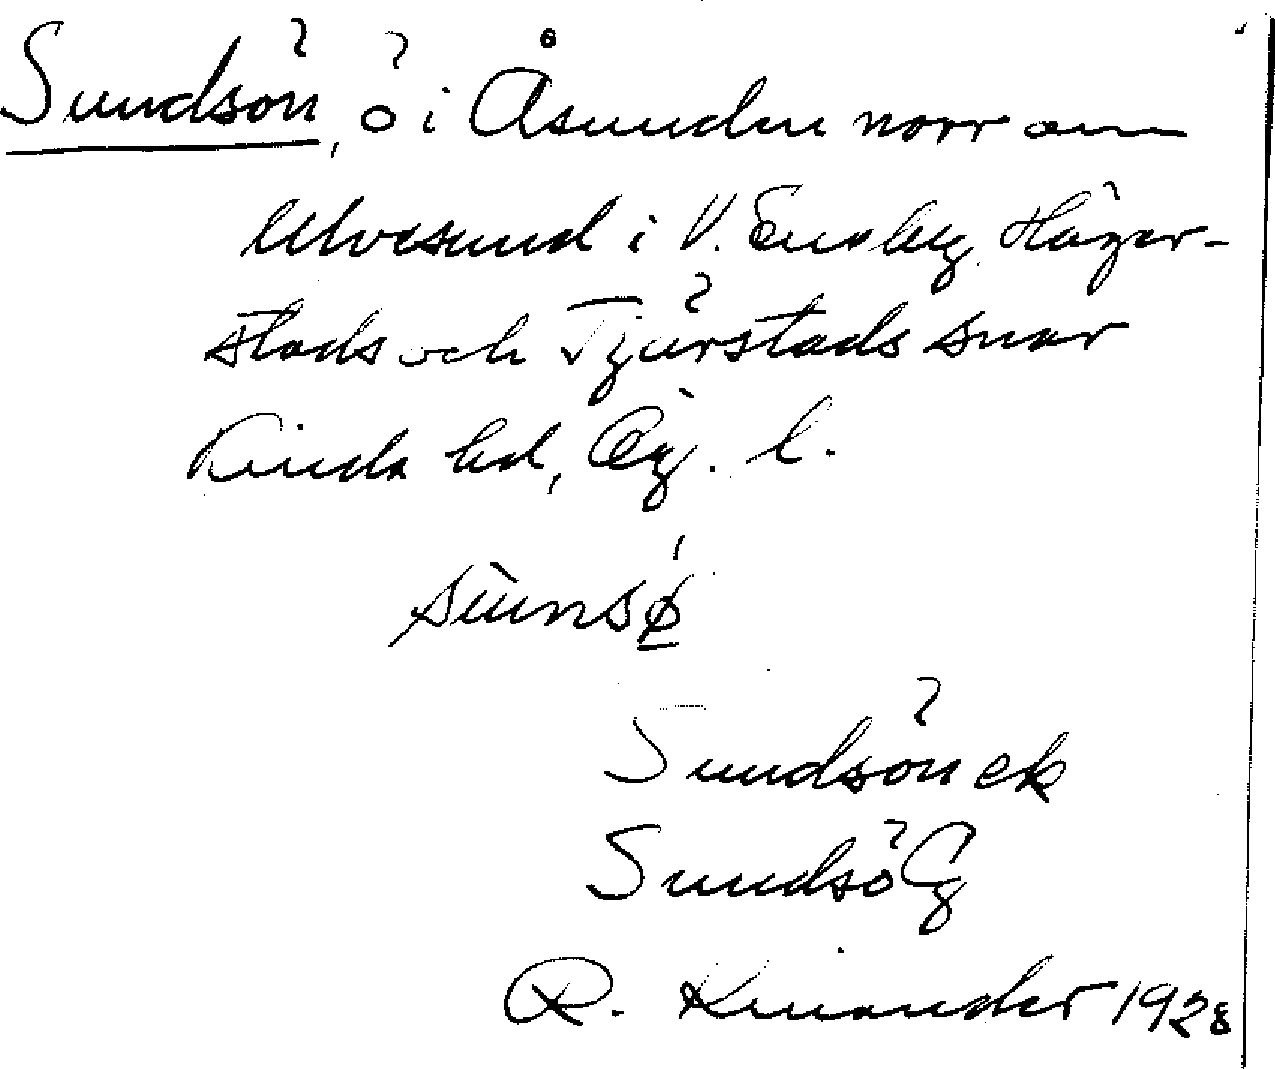 Sundsön, ö i Åsunden norr om
Ulvesund i V. Eneby, Häger-
stads och Tjärstads snar
Kinda hd, Ög. l.
sùnsø̀
Sundsön ek
Sundsö Gg
R. Kinander 1928